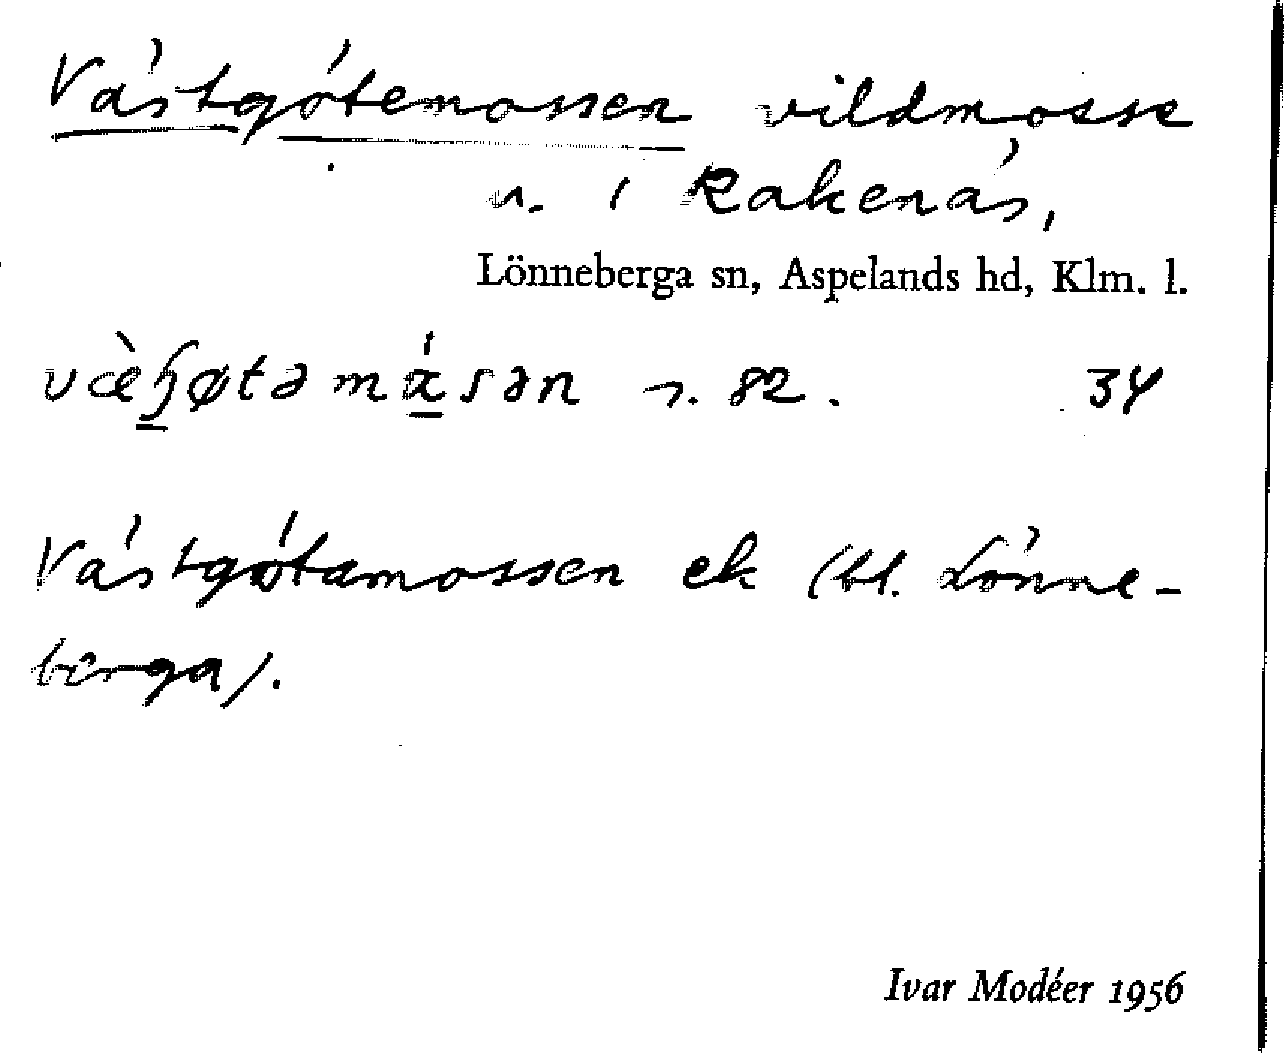 Västgötemossen vildmosse
n. i Rakenäs,
Lönneberga sn, Aspelands hd, Klm. l.
s. 82. 34
Västgötamossen ek (bl. Lönne-
berga).
Ivar Modéer 1956